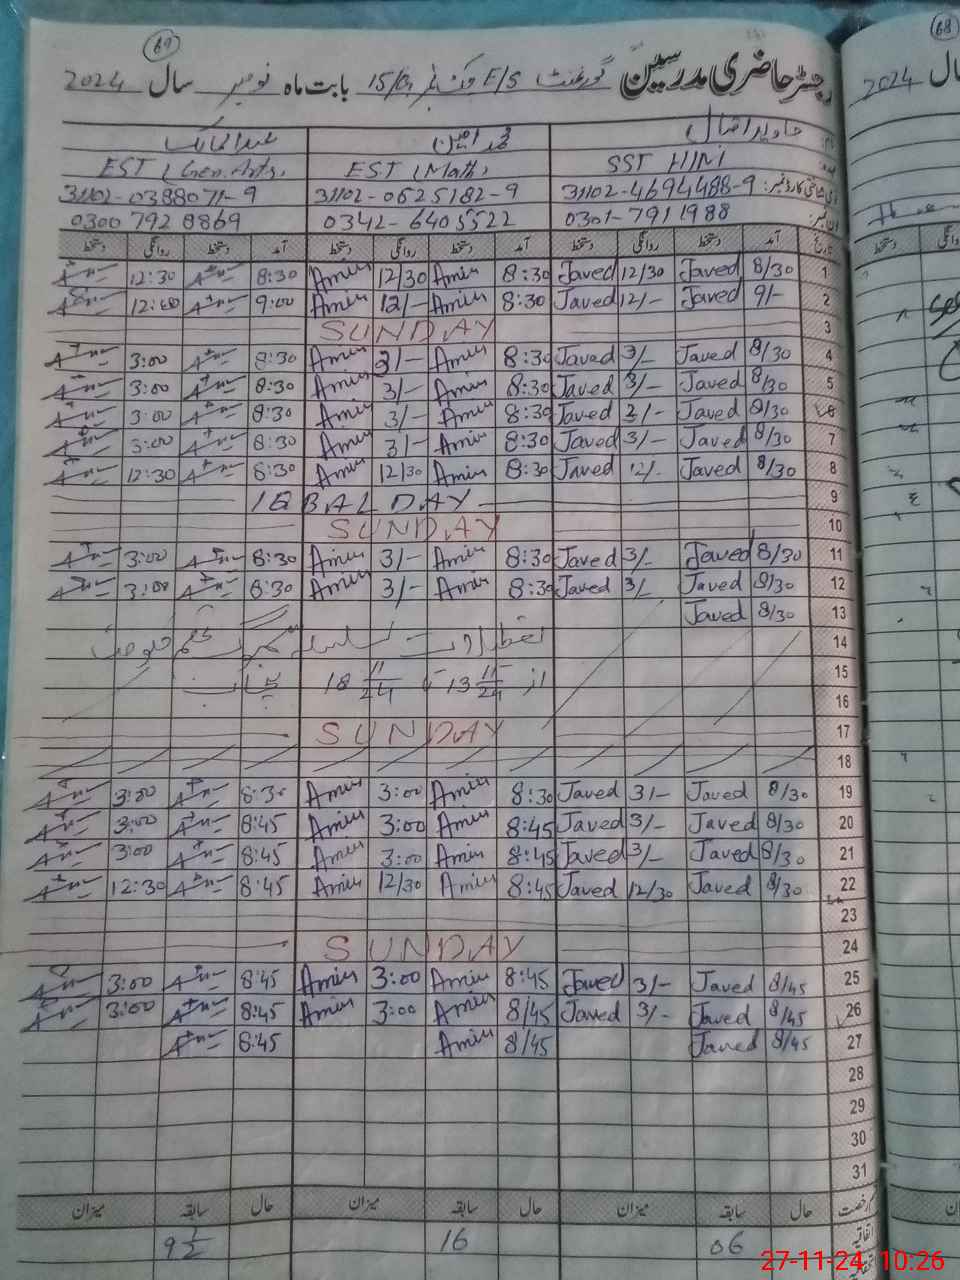 69
رجسٹر حاضری مدرسین گورنمنٹ E/S بابت ماہ نومبر سال 2024
جاوید اقبال محمد امین
SST HM EST (Math) EST (Gen. Arts)
31102-4694488-9 31102-0525182-9 31102-0388071-9
0301-7911988 0342-6405522 0300 792 8869
تاریخ آمد دستخط روانگی دستخط آمد دستخط روانگی دستخط آمد دستخط روانگی دستخط
1 8/30 Javed 12/30 Javed 8:30 Amin 12/30 Amin 8:30 12:30
2 9/- Javed 12/- Javed 8:30 Amin 12/- Amin 9:00 12:00
3 SUNDAY
4 8/30 Javed 3/- Javed 8:30 Amin 3/- Amin 8:30 3:00
5 8/30 Javed 3/- Javed 8:30 Amin 3/- Amin 8:30 3:00
6 8/30 Javed 3/- Javed 8:30 Amin 3/- Amin 8:30 3:00
7 8/30 Javed 3/- Javed 8:30 Amin 3/- Amin 8:30 3:00
8 8/30 Javed 12/- Javed 8:30 Amin 12/30 Amin 8:30 12:30
9 IQBAL DAY
10 SUNDAY
11 8/30 Javed 3/- Javed 8:30 Amin 3/- Amin 8:30 3:00
12 8/30 Javed 3/- Javed 8:30 Amin 3/- Amin 8:30 3:00
13 8/30 Javed
14 تعطیلات بسلسلہ
15 از 13 11/24 تا 18 11/24
16
17 SUNDAY
18
19 8/30 Javed 3/- Javed 8:30 Amin 3:00 Amin 8:30 3:00
20 8/30 Javed 3/- Javed 8:45 Amin 3:00 Amin 8:45 3:00
21 8/30 Javed 3/- Javed 8:45 Amin 3:00 Amin 8:45 3:00
22 8/30 Javed 12/30 Javed 8:45 Amin 12/30 Amin 8:45 12:30
23
24 SUNDAY
25 8/45 Javed 3/- Javed 8:45 Amin 3:00 Amin 8:45 3:00
26 8/45 Javed 3/- Javed 8/45 Amin 3:00 Amin 8:45 3:00
27 8/45 Javed 8/45 Amin 8:45
28
29
30
31
رخصت حال سابقہ میزان حال سابقہ میزان حال سابقہ میزان
اتفاقیہ 06 16 9 1/2
68
سال 2024
دستخط
27-11-24 10:26